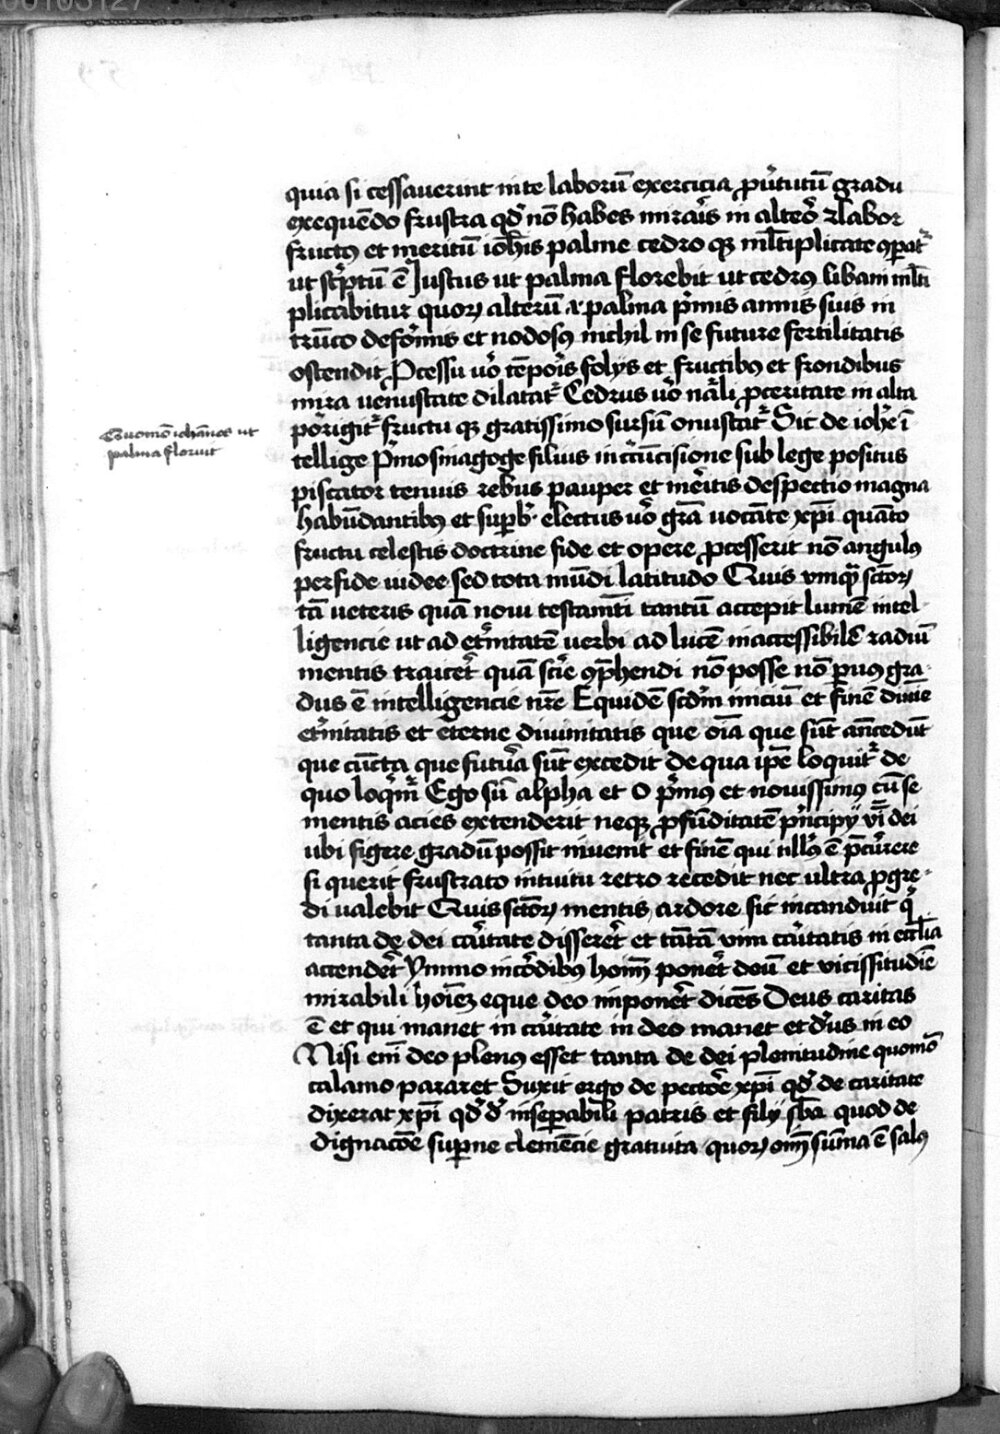 00103127
quia si cessauerint in te laborū exercicia ꝓ uͥtutū gradu
exequēdo frustra qd̕ nō habes miraͥs in alteͦ ⁊ labor
fructꝰ et meritū ioh̄is palme cedro qꝫ ml̄tiplicate ꝯpat᷑
ut sͥptū ē Justus ut palma florebit ut cedrꝰ libani ml̄ti
plicabitur quoꝝ alterū .i. palma pͥmis annis suis in
trūco defoͬmis et nodosꝰ nichil in se future fertilitatis
ostendit Ꝓcessu uͦ tēpoͥs folijs et fructibꝰ et frondibus
mira uenustate dilatat᷑ Cedrus uͦ nāli ꝓceritate in alta
poͬrigit᷑ fructu qꝫ gratissimo sursū onustat᷑ Sic de ioh̄e ī
tellige Pͥmo sinagoge filius in cͥcūcisione sub lege positus
piscator tenuis rebus pauper et meͥtis despectio magna
habūdantibꝰ et suꝑb̕ electus uͦ gr̄a uocāte xp̄i quāto
fructu celestis doctrine fide et opere ꝓcesserit nō angulꝰ
perfide iudee sed tota mūdi latitudo Quis vmqͣ sc̄toꝝ
tā ueteris quā noui testam̄ti tantū accepit lumē intel
ligencie ut ad et̕nitatē uerbi ad lucē inaccessibilē radiū
mentis traicet̕ quā scͥe ꝯp̄hendi nō posse nō ꝑuꝰ gra
dus ē intelligencie nr̄e Equidē scd̄m iniciū et finē diuīe
et̕nitatis et eterne diuinitatis que oīa que sūt an̄cedūt
que cūcta que futuͬa sūt excedit de qua ip̄e loquit᷑ de
quo loqͥm᷑ Ego sū alpha et o pͥmꝰ et nouissimꝰ cū se
mentis acies extenderit neqꝫ ꝓfūditatē pͥncipij vī dei
ubi figere gradū possit inuenit et finē qui nll̕ꝰ ē p̄cuͬrere
si querit frustrato intuitu retro recedit nec ultra ꝓgre
di ualebit Quis sc̄toꝝ mentis ardore sic incanduit qͥ
tanta de dei caͥtate disseret̕ et tātā uim caͥtatis in eccl̄ia
accendet̕ Ymmo incͦdibꝰ hoīm ponet̕ deū et vicissitudīe
mirabili hoīeꝫ eque deo imponet̕ dicēs Deus caritas
ē et qui manet in caͥtate in deo manet et d̕us in eo
Nisi enī deo plenꝰ esset tanta de dei plenitudine quomō
calamo pararet Suxit ergo de pectoͬe xp̄i qd̕ de caritate
dixerat xp̄i qd̕ d̕ inseꝑabili patris et filij sb̄a quod de
dignacōe suꝑne clemēcie gratiuita quoꝝ oīm sūma ē salꝰ
Quomō iohānes ut
palma floruit